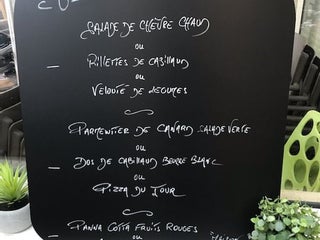 SALADE DE CHÈVRE CHAUD
OU
RILLETTES DE CABILLAUD
OU
VELOUTÉ DE LEGUMES
PARMENTIER DE CANARD SALADE VERTE
OU
DOS DE CABILLAUD BEURRE BLANC
OU
PIZZA DU JOUR
PANNA COTTA FRUITS ROUGES
OU